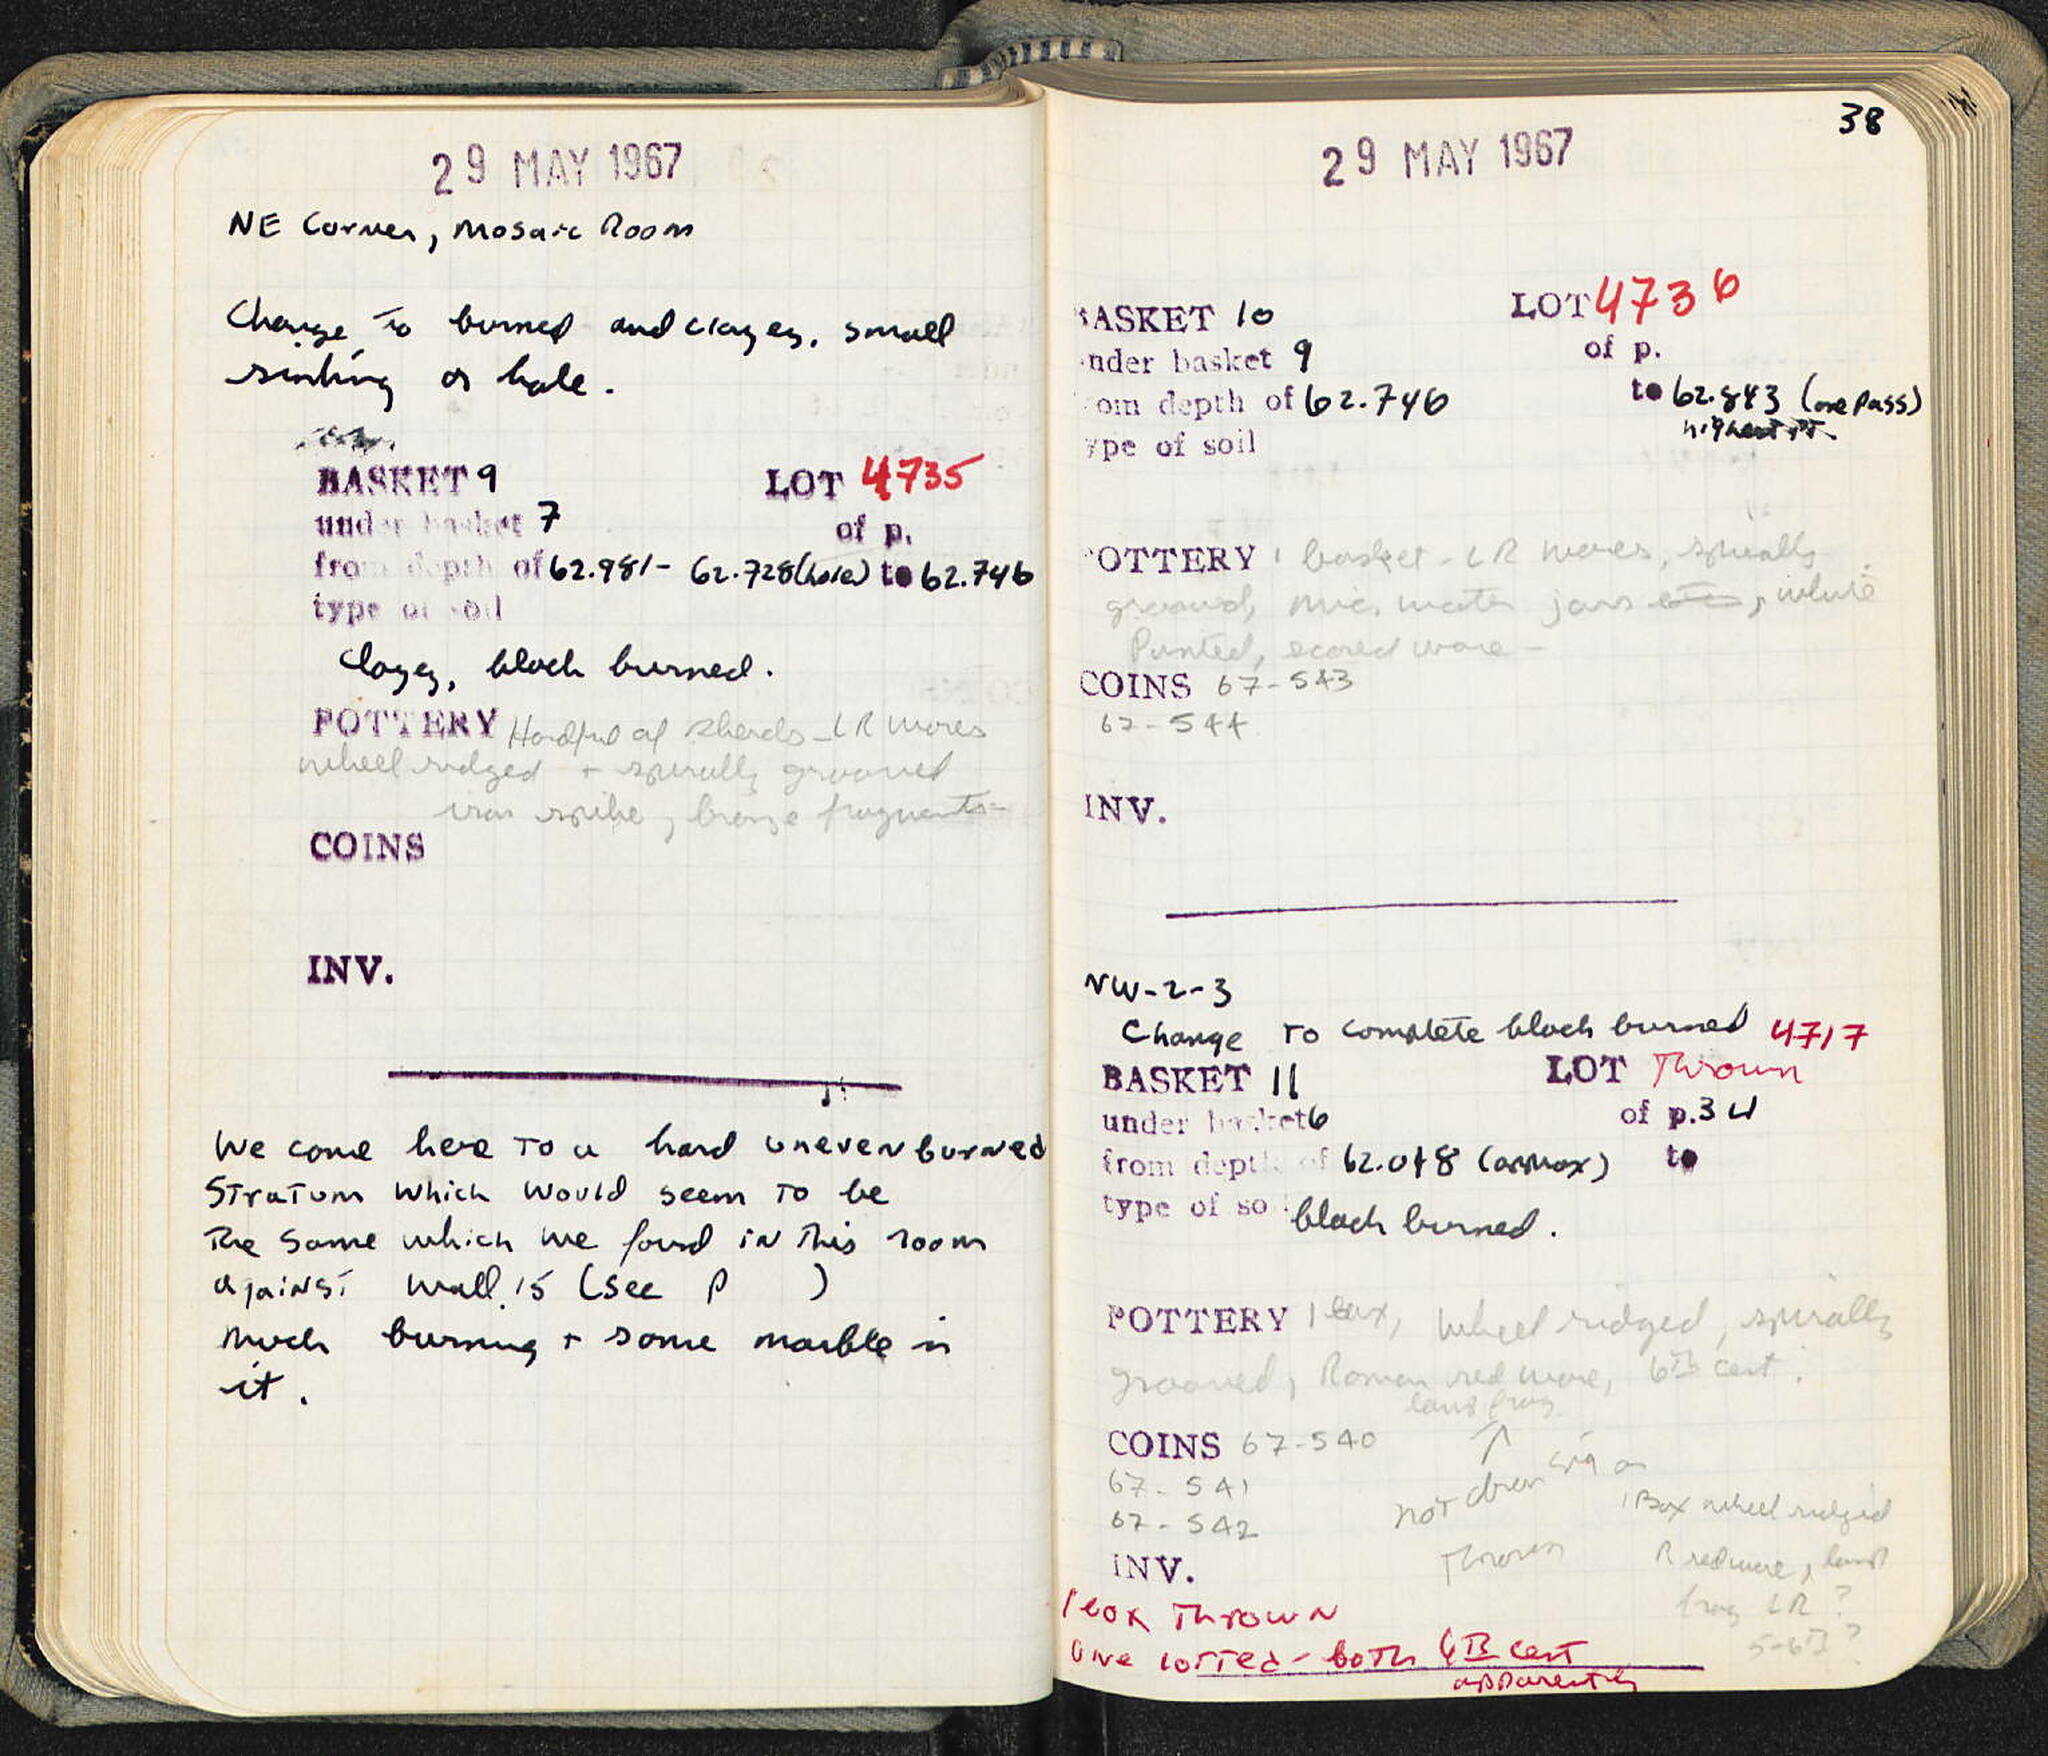 29 MAY 1967
NE Corner, Mosaic Room
Change to burned and clayey, small
sinking or hole.
BASKET 9 LOT 4735
under basket 7 of p.
from depth of 62.981- 62.728 (hole) to 62.746
type of soil
Clayey, black burned.
POTTERY Handful of sherds - LR wares
wheel ridged + spirally grooved
iron spike, bronze fragments-
COINS
INV.
We come here to a hard uneven burned
stratum which would seem to be
the same which we found in this room
against wall 15 (see p )
much burning + some marble in
it.
38
29 MAY 1967
BASKET 10 LOT 4736
under basket 9 of p.
from depth of 62.746 to 62.843 (one pass)
highest pt.
type of soil
POTTERY 1 basket - LR wares, spirally
grooved, mic. water jars, white
Painted, scored ware -
COINS 67-543
67-544
INV.
NW-2-3
Change to complete black burned 4717
BASKET 11 LOT Thrown
under basket 6 of p. 34
from depth of 62.048 (approx) to
type of soil black burned.
POTTERY 1 box, wheel ridged, spirally
grooved, Roman red ware, 6th cent.
lamp frag.
COINS 67-540
67-541
67-542
not
Thrown
1 Box wheel ridged
R red ware, lamp
frag LR?
5-6th?
INV.
1 box Thrown
one lotted - both 6th cent
apparently